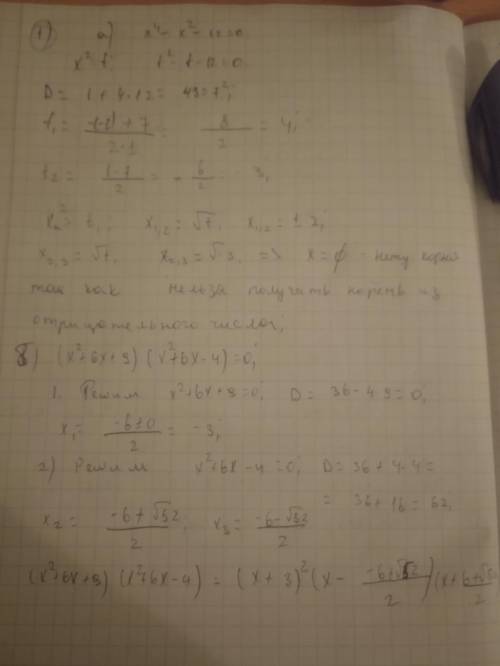 1) а) x⁴ - x² - 12 = 0;
x² = t; t² - t - 12 = 0;
D = 1 + 4·12 = 49 = 7²;
t₁ = (-(-1) + 7)/(2·1) = 8/2 = 4;
t₂ = (1-7)/2 = -6/2 = -3;
x² = t, x₁,₂ = √t, x₁,₂ = ± 2;
x₂,₃ = √t, x₂,₃ = √-3, => x = ∅ - нету корней
так как нельзя получать корень из
отрицательного числа;
б) (x²+6x+9) (x²+6x-4)=0;
1. Решим x²+6x+9=0; D = 36-4·9=0;
x₁ = (-6+0)/2 = -3;
2) Решим x²+6x-4=0; D=36+4·4=
= 36+16=52;
x₂ = (-6+√52)/2; x₃ = (-6-√52)/2
(x²+6x+9) (x²+6x-4) = (x+3)² (x - (-6+√52)/2) (x+ (6+√52)/2